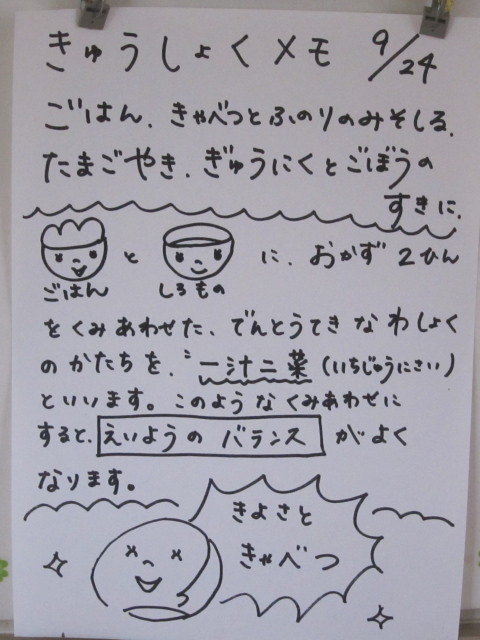 きゅうしょくメモ 9/24
ごはん、きゃべつとふのりのみそしる、
たまごやき、ぎゅうにくとごぼうの
すきに、
ごはん と しるもの に、おかず2ひん
をくみあわせた、でんとうてきなわしょく
のかたちを、〝一汁二菜(いちじゅうにさい)
といいます。このようなくみあわせに
すると、えいようのバランスがよく
なります。
きよさと
きゃべつ